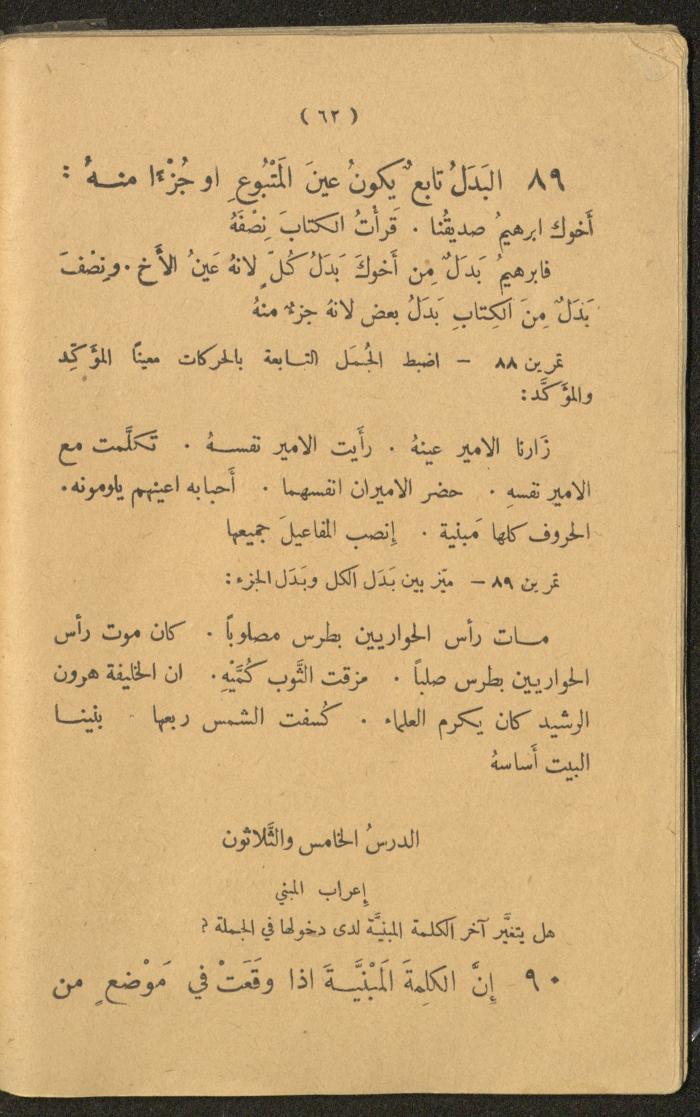 ( ٦٢ )
٨٩ البَدَلُ تابعٌ يكونُ عينَ المَتْبُوعِ او جُزْءًا منهُ :
أَخوك ابرهيمُ صديقُنا . قَرأْتُ الكتابَ نِصْفَهُ
فابرهيمُ بَدَلٌ مِن أَخوكَ بَدَلُ كُلٍّ لانهُ عَينُ الأَخ . ونِصْفَ
بَدَلٌ مِنَ الكِتابِ بَدَلُ بعض لانهُ جزءٌ منهُ
تمرين ٨٨ – اضبط الجُمَل التابعة بالحركات معينًا المؤَكِّد
والمؤَكَّد :
زَارنا الامير عينهُ . رأَيت الامير نفسهُ . تَكلَّمت مع
الامير نفسهِ . حضر الاميران انفسهما . أَحبابه اعينهم يلومونه .
الحروف كلها مَبنية . إِنصب المفاعيلَ جميعها
تمرين ٨٩ – ميّز بين بَدَل الكل وبَدَل الجزء :
مات رأس الحواريين بطرس مصلوباً . كان موت رأس
الحواريين بطرس صلباً . مزقت الثَّوب كُمَّيْهِ . ان الخليفة هرون
الرشيد كان يكرم العلماء . كُسفت الشمس ربعها بنينا
البيت أَساسهُ
الدرسُ الخامس والثَّلاثون
إِعراب المبني
هل يتغيَّر آخر الكلمة المبنيَّة لدى دخولها في الجملة ؟
٩٠ إِنَّ الكلِمةَ المَبْنيَّةَ اذا وقَعَتْ في مَوْضعٍ من